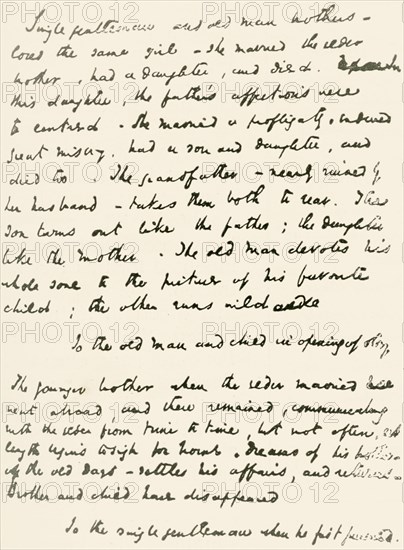 Single gentleman and old man brothers -
loved the same girl - she married the elder
brother, had a daughter, and died. Upon
this daughter, the father's affections were
so centered - She married a profligate, endured
great misery, had a son and daughter, and
died too. The grandfather - nearly ruined by
her husband - takes them both to rear. The
son turns out like the father; the daughter
like the mother. The old man devotes his
whole soul to the picture of his favorite
child; the other runs wild
So the old man and child in opening of story,
The younger brother when the elder married
went abroad, and there remained, communicating
with the elder from time to time, but not often, at
length begins to sigh for home. Dreams of his brother
of the old days - settles his affairs, and returns -
Brother and child have disappeared
So the single gentleman when he first
PHOTO 12